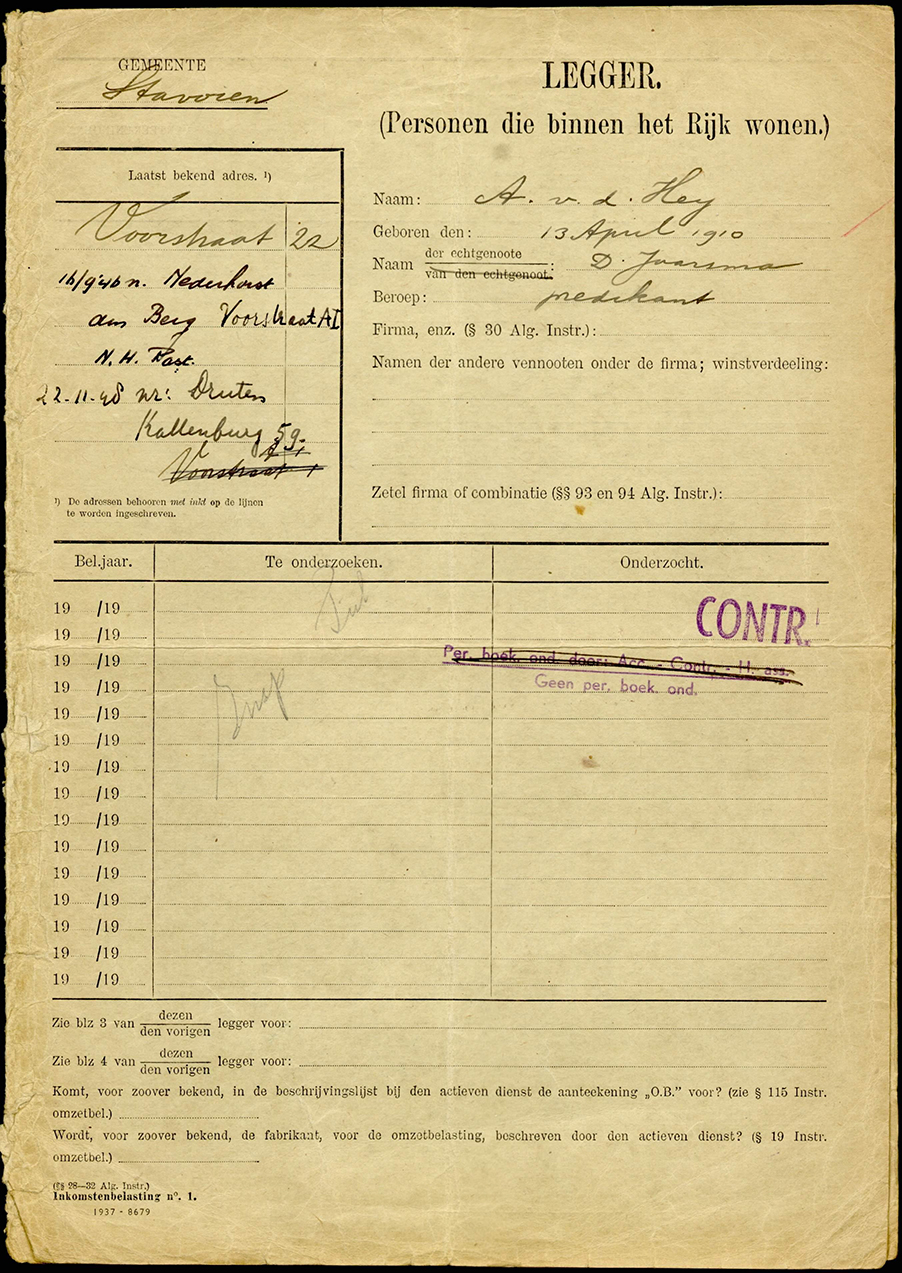 GEMEENTE
Stavoren
LEGGER.
(Personen die binnen het Rijk wonen.)
Laatst bekend adres. ¹)
Voorstraat 22
16/9'46 n. Nederhorst
den Berg Voorstraat A1
N.H. Past.
22-11-48 nr: Druten
Kallenburg 59.
Voorstraat
¹) De adressen behooren met inkt op de lijnen
te worden ingeschreven.
Naam: A. v. d. Hey
Geboren den: 13 April 1910
Naam der echtgenoote
van den echtgenoot. : D. Jaarsma
Beroep: predikant
Firma, enz. (§ 30 Alg. Instr.):
Namen der andere vennooten onder de firma; winstverdeeling:
Zetel firma of combinatie (§§ 93 en 94 Alg. Instr.):
Bel.jaar. Te onderzoeken. Onderzocht.
19 /19
19 /19 CONTR.
19 /19 Per. boek. ond. door: Acc. - Contr. - H. ass.
19 /19 Geen per. boek. ond.
19 /19
19 /19
19 /19
19 /19
19 /19
19 /19
19 /19
19 /19
19 /19
19 /19
19 /19
Zie blz 3 van dezen
den vorigen legger voor:
Zie blz 4 van dezen
den vorigen legger voor:
Komt, voor zoover bekend, in de beschrijvingslijst bij den actieven dienst de aanteekening „O.B.” voor? (zie § 115 Instr.
omzetbel.)
Wordt, voor zoover bekend, de fabrikant, voor de omzetbelasting, beschreven door den actieven dienst? (§ 19 Instr.
omzetbel.)
(§§ 28—32 Alg. Instr.)
Inkomstenbelasting nº. 1.
1937 - 8679